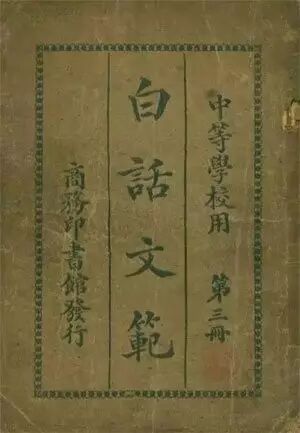 中等學校用 第三冊
白話文範
商務印書館發行